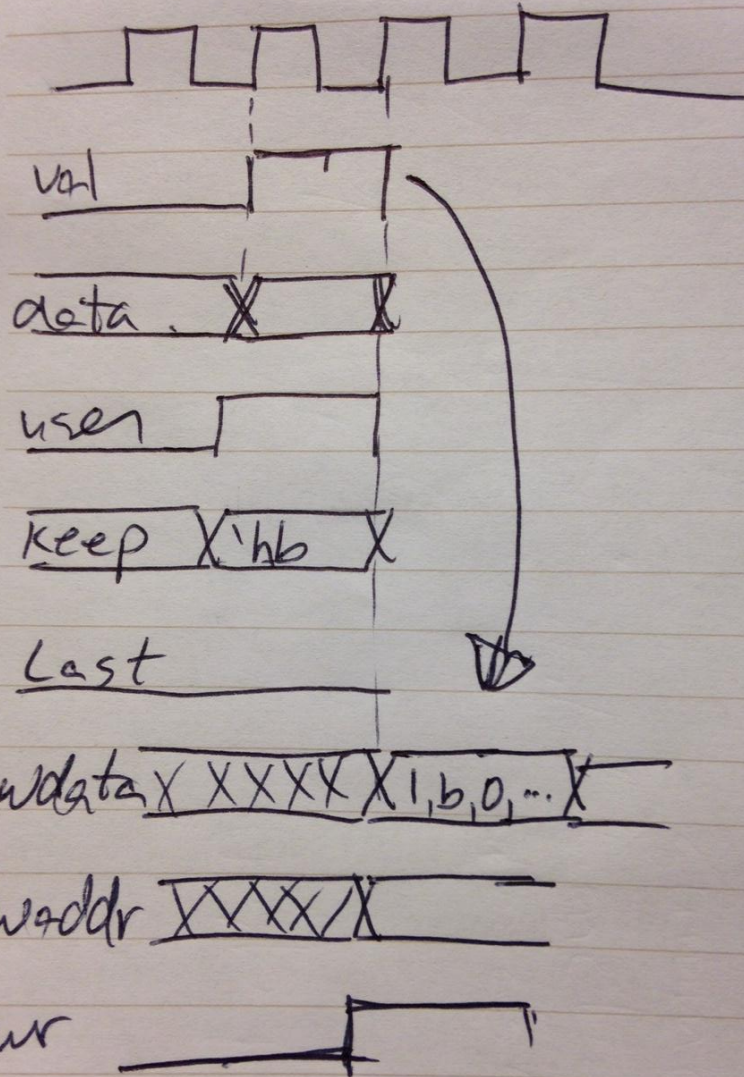 val
data
user
keep 'hb
Last
wdata X XXXX X 1,b,0,...
waddr
wr